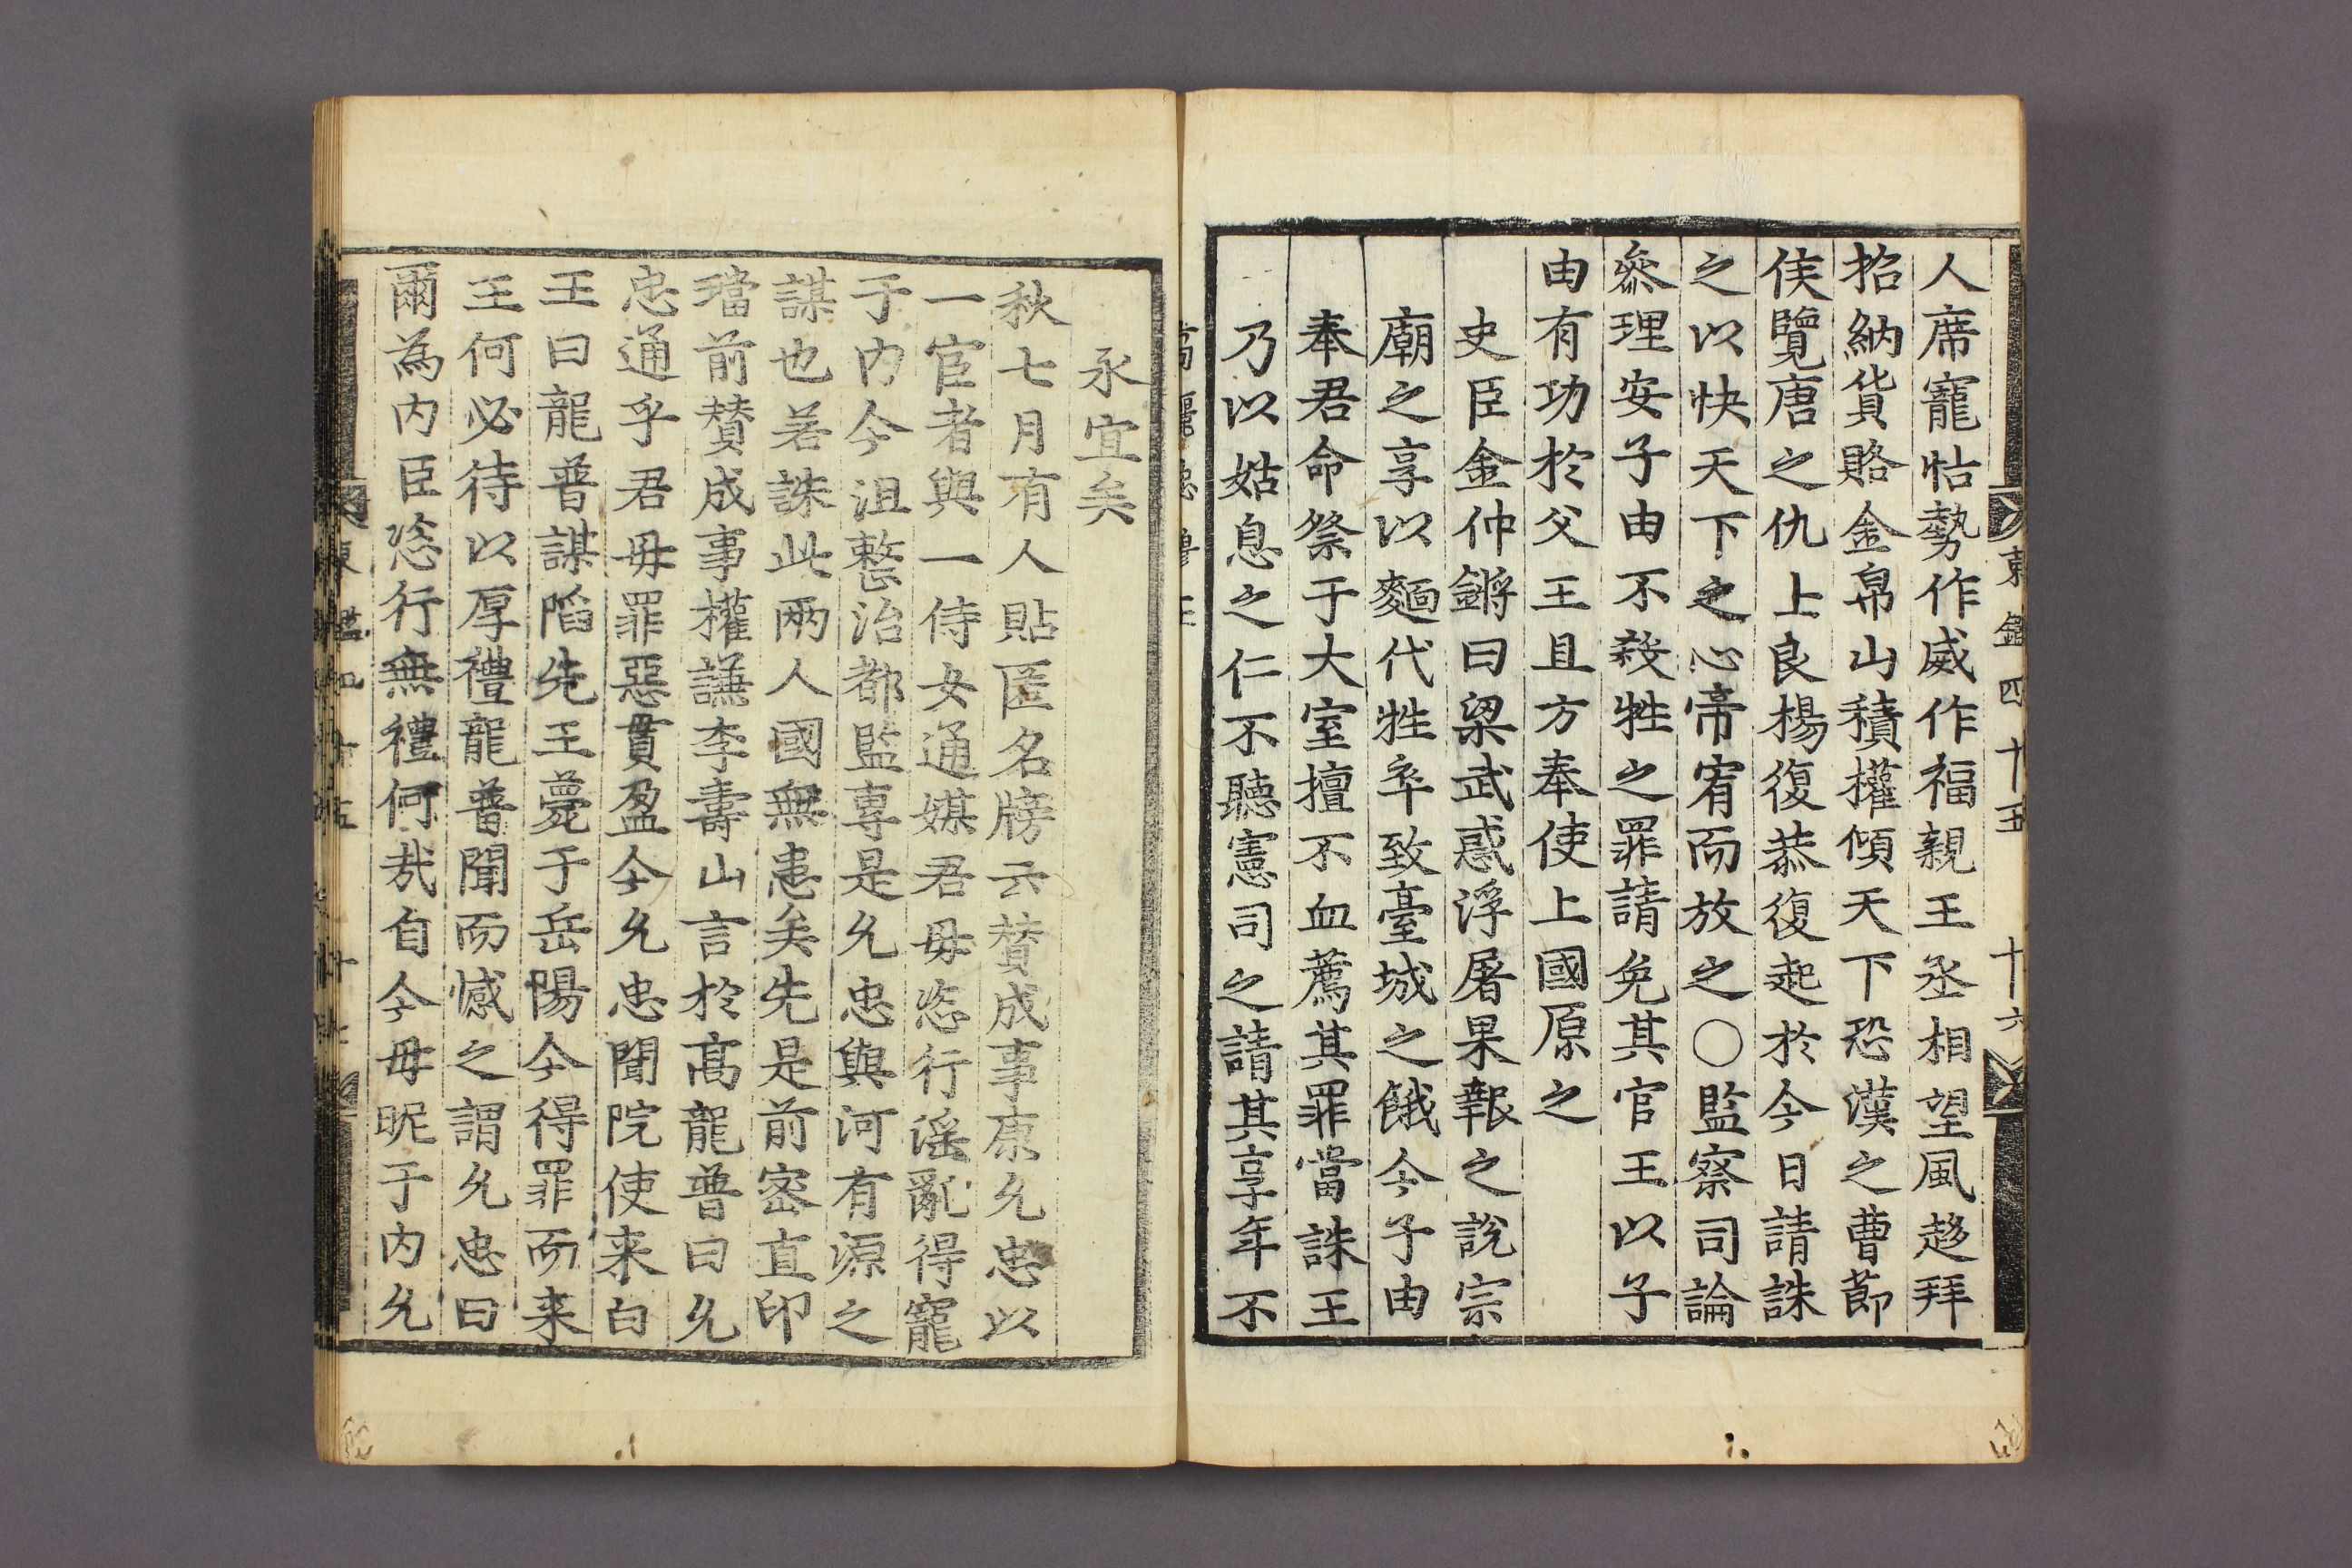 東鑑四十五 十六
人席寵怙勢作威作福親王丞相望風趍拜
招納貨賂金帛山積權傾天下恐漢之曹節
侯覽唐之仇上良楊復恭復起於今日請誅
之以快天下之心帝宥而放之○監察司論
叅理安子由不殺牲之罪請免其官王以子
由有功於父王且方奉使上國原之
史臣金仲鏘曰梁武惑浮屠果報之說宗
廟之享以麵代牲卒致臺城之餓今子由
奉君命祭于大室擅不血薦其罪當誅王
乃以姑息之仁不聽憲司之請其享年不
永宜矣
秋七月有人貼匿名牓云賛成事康允忠以
一宦者與一侍女通媒君毋恣行滛亂得寵
于內今沮整治都監專是允忠與河有源之
謀也若誅此兩人國無患矣先是前密直印
璫前賛成事權謙李壽山言於高龍普曰允
忠通乎君毋罪惡貫盈今允忠聞院使来白
王曰龍普謀陷先王薨于岳陽今得罪而来
王何必待以厚禮龍普聞而憾之謂允忠曰
爾為內臣恣行無禮何㢤自今毋昵于內允